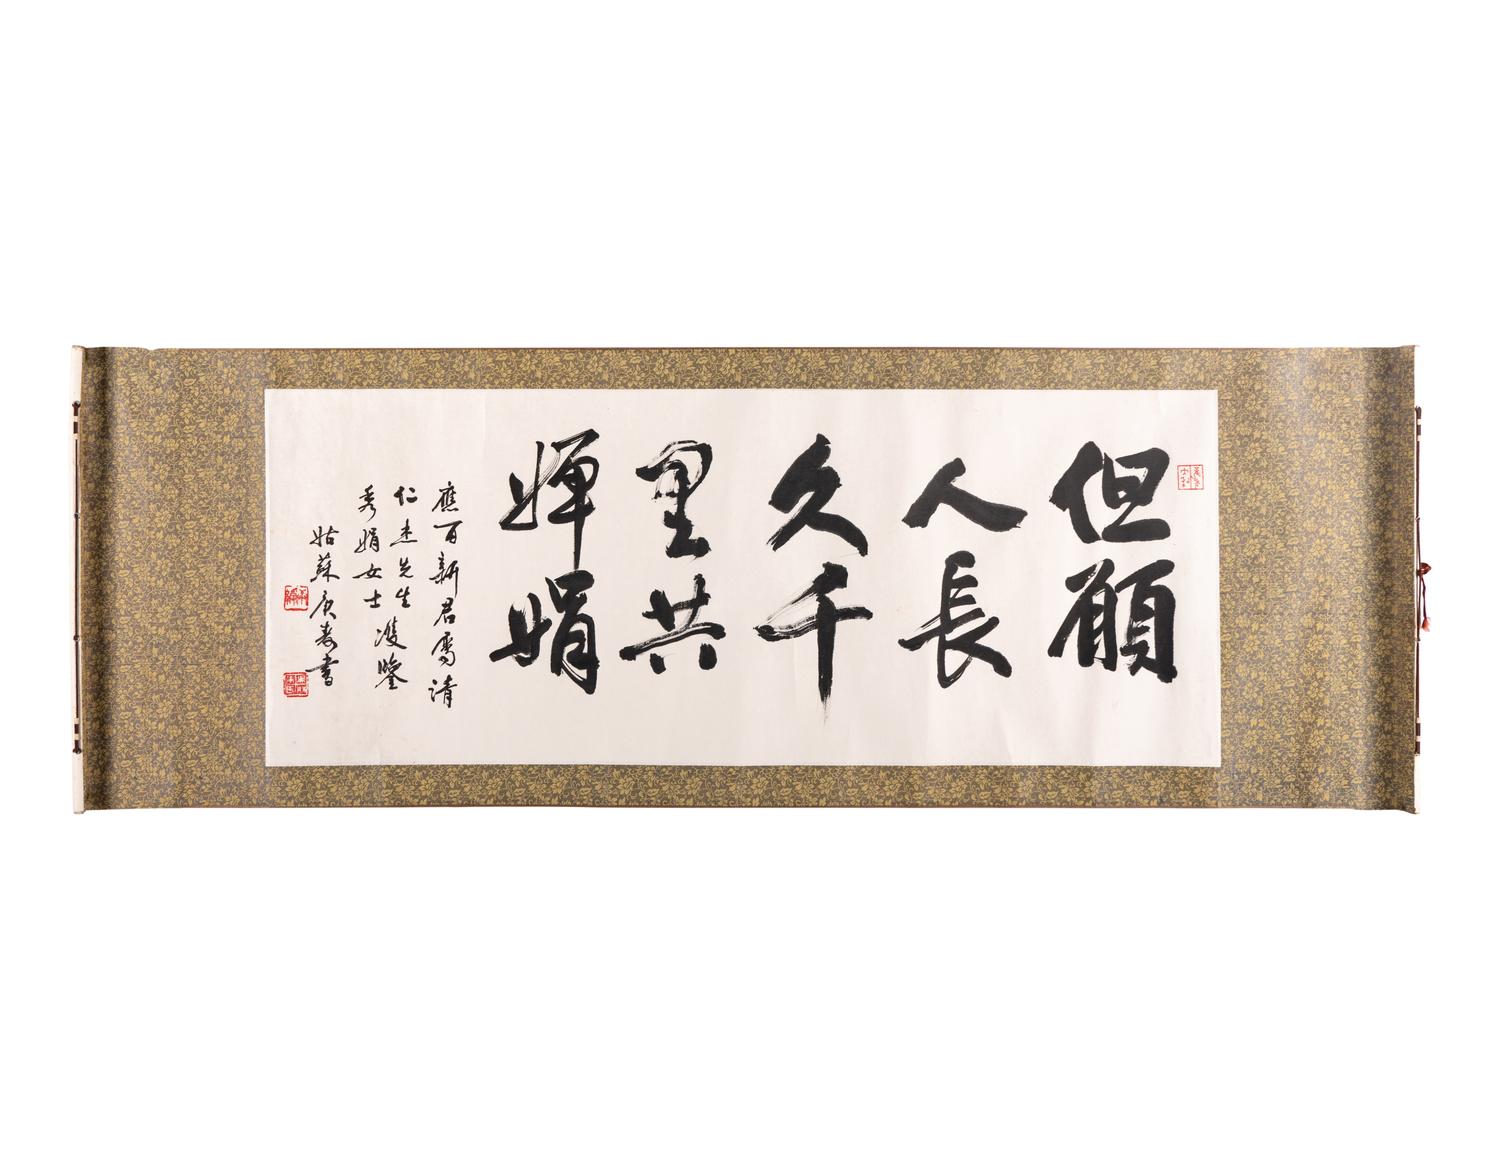 但願
人長
久千
里共
嬋娟
應百新君屬清
仁杰先生
秀娟女士雙鑒
姑蘇庚春書